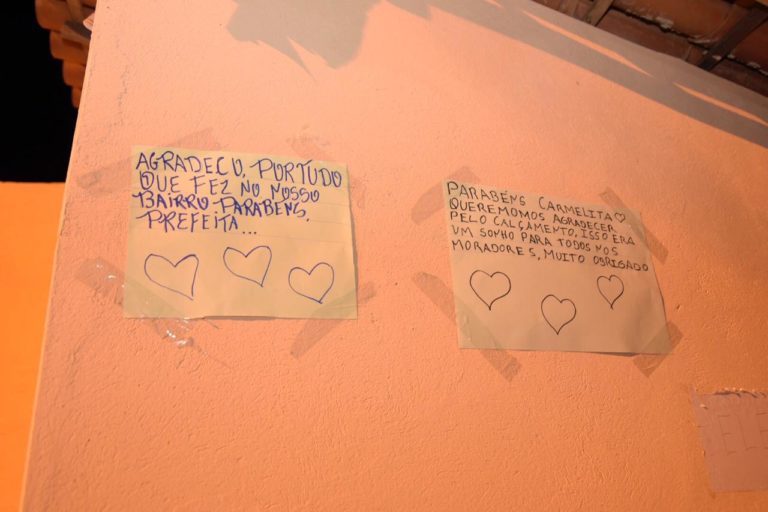 AGRADECU, PORTUDO
QUE FEZ NO NOSSO
BAIRRO. PARABENS,
PREFEITA...
PARABÉNS CARMELITA♡
QUEREMOMOS AGRADECER
PELO CALÇAMENTO, ISSO ERA
UM SONHO PARA TODOS NOS
MORADORES, MUITO OBRIGADO